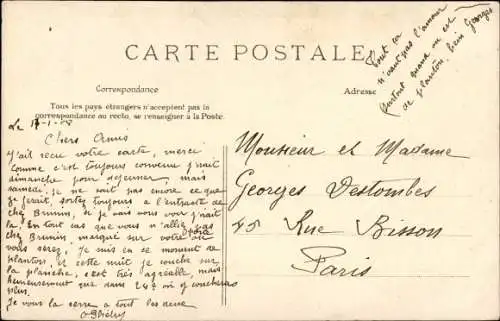 Tout ça
n'vaut pas l'amour
surtout quand on est
de planton, hein Georges
CARTE POSTALE
Correspondance
Adresse
Tous les pays étrangers n'acceptent pas la
correspondance au recto, se renseigner à la Poste.
Le
Chers Amis
J'ai reçu votre carte, merci
comme c'est toujours convenu j'irai
dimanche pour déjeuner, mais
samedi, je ne sais pas encore ce que
je ferai, sortez toujours à l'entracte de
chez Brunin, si je vais vous voir j'irai
là. En tout cas que vous n'alliez pas
chez Brunin, marquez sur votre où
vous serez. Je suis en ce moment de
planton, et cette nuit je couche sur
la planche, c'est très agréable, mais
heureusement que dans 24h on y couchera
plus.
Je vous la serre à tout les deux
Monsieur et Madame
Georges Destombes
45 Rue Bisson
Paris